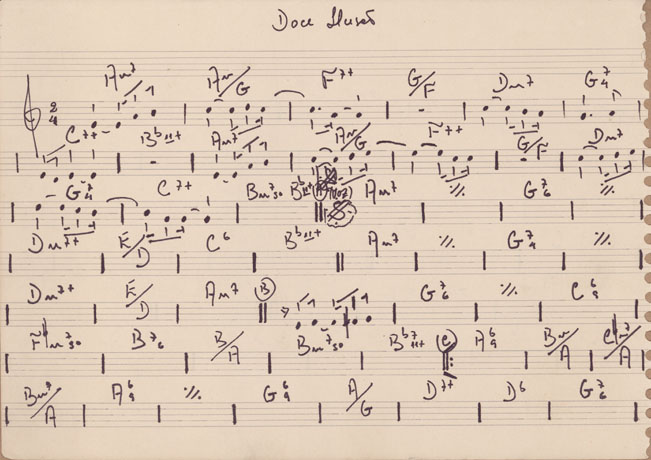 Doce Ilusão
2/4 Am7 Am/G F7+ G/F Dm7 G7/4
C7+ Bb11+ Am7 Am/G F7+ G/F Dm7
G7/4 C7+ Bm7 Bb Am7 ٪ G7/6 ٪
Dm7+ E/D C6 Bb11+ Am7 ٪ G7/4 ٪
Dm7+ E/D Am7 B G7/6 ٪ C6/9
F#m7 B7/6 B/A Bm7 Bb7/11+ C A6/9 Bm/A C#m7/A
Bm7/A A6/9 ٪ G6/9 A/G D7+ D6 G7/6